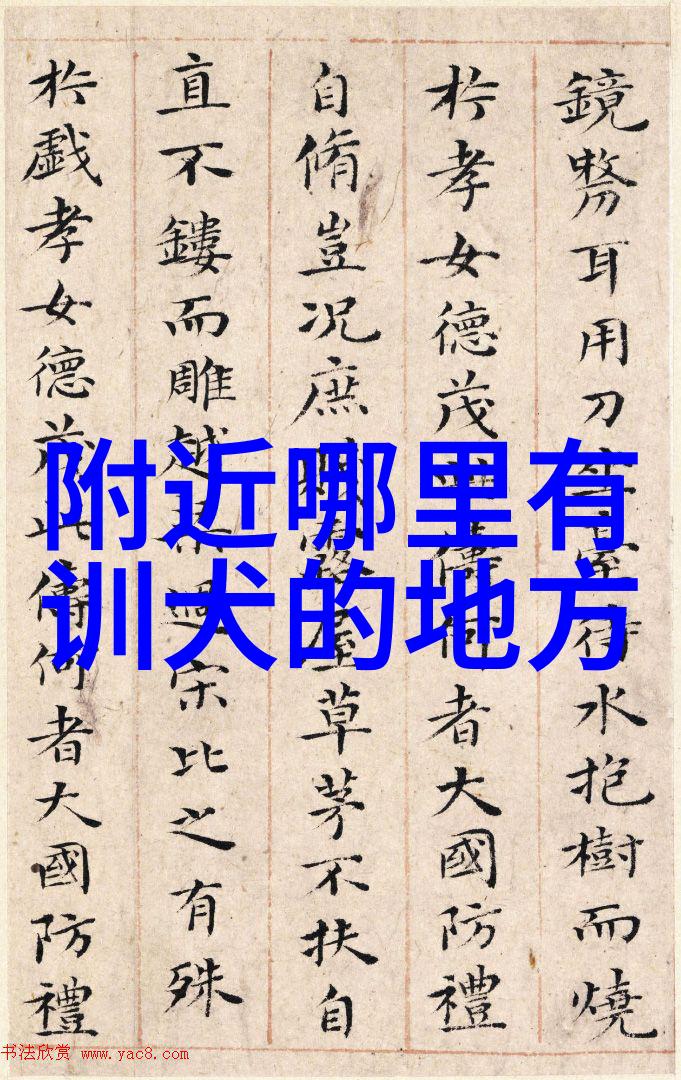 附近哪里有
训犬的地方
鏡剺耳用刀坐臺待水抱樹而燒
於孝女德茂此儔何者大國防禮
自脩豈況庶賤露屋草茅不扶自
直不鏤而雕越梁過宋比之有殊
於戲孝女德茂此儔何者大國防禮
书法欣赏 www.yac8.com